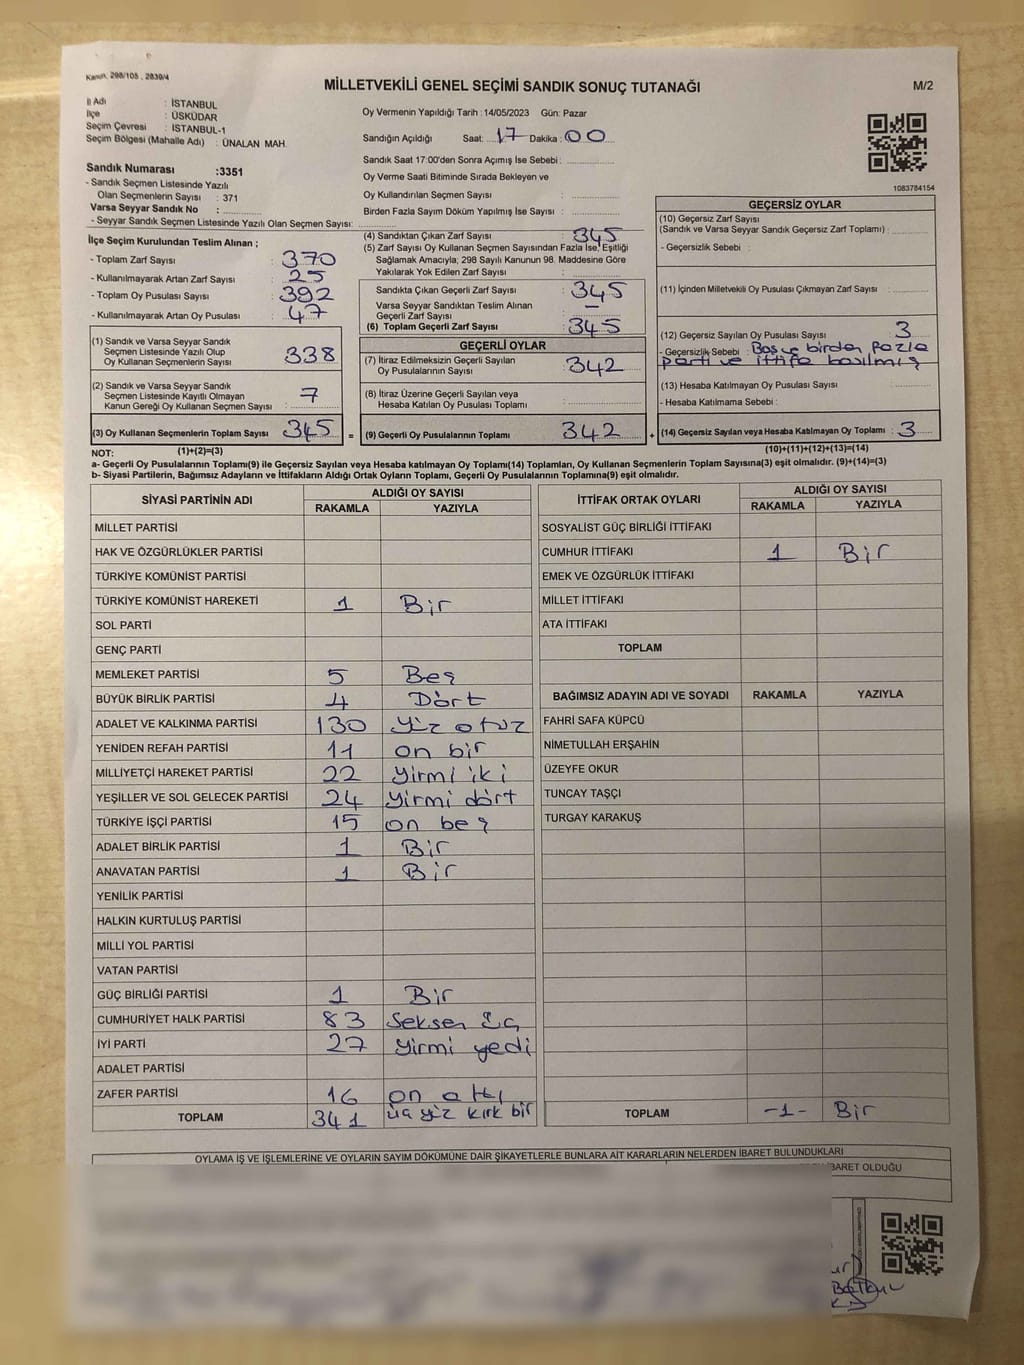 Kanun, 298/105 , 2839/4
MİLLETVEKİLİ GENEL SEÇİMİ SANDIK SONUÇ TUTANAĞI
M/2
İl Adı : İSTANBUL
İlçe : ÜSKÜDAR
Seçim Çevresi : İSTANBUL-1
Seçim Bölgesi (Mahalle Adı) : ÜNALAN MAH.
Oy Vermenin Yapıldığı Tarih : 14/05/2023 Gün: Pazar
Sandığın Açıldığı Saat: 17 Dakika : 00
Sandık Saat 17:00'den Sonra Açımış İse Sebebi :
Oy Verme Saati Bitiminde Sırada Bekleyen ve
Oy Kullandırılan Seçmen Sayısı :
Birden Fazla Sayım Döküm Yapılmış İse Sayısı :
1083784154
Sandık Numarası :3351
- Sandık Seçmen Listesinde Yazılı
Olan Seçmenlerin Sayısı : 371
Varsa Seyyar Sandık No :
- Seyyar Sandık Seçmen Listesinde Yazılı Olan Seçmen Sayısı:
İlçe Seçim Kurulundan Teslim Alınan ;
- Toplam Zarf Sayısı : 370
- Kullanılmayarak Artan Zarf Sayısı : 25
- Toplam Oy Pusulası Sayısı : 392
- Kullanılmayarak Artan Oy Pusulası : 47
(1) Sandık ve Varsa Seyyar Sandık
Seçmen Listesinde Yazılı Olup
Oy Kullanan Seçmenlerin Sayısı : 338
(2) Sandık ve Varsa Seyyar Sandık
Seçmen Listesinde Kayıtlı Olmayan
Kanun Gereği Oy Kullanan Seçmen Sayısı : 7
(3) Oy Kullanan Seçmenlerin Toplam Sayısı : 345
(4) Sandıktan Çıkan Zarf Sayısı : 345
(5) Zarf Sayısı Oy Kullanan Seçmen Sayısından Fazla İse, Eşitliği
Sağlamak Amacıyla; 298 Sayılı Kanunun 98. Maddesine Göre
Yakılarak Yok Edilen Zarf Sayısı :
Sandıkta Çıkan Geçerli Zarf Sayısı : 345
Varsa Seyyar Sandıktan Teslim Alınan
Geçerli Zarf Sayısı : —
(6) Toplam Geçerli Zarf Sayısı : 345
GEÇERLİ OYLAR
(7) İtiraz Edilmeksizin Geçerli Sayılan
Oy Pusulalarının Sayısı : 342
(8) İtiraz Üzerine Geçerli Sayılan veya
Hesaba Katılan Oy Pusulası Toplamı :
= (9) Geçerli Oy Pusulalarının Toplamı : 342 +
GEÇERSİZ OYLAR
(10) Geçersiz Zarf Sayısı
(Sandık ve Varsa Seyyar Sandık Geçersiz Zarf Toplamı) :
- Geçersizlik Sebebi :
(11) İçinden Milletvekili Oy Pusulası Çıkmayan Zarf Sayısı :
(12) Geçersiz Sayılan Oy Pusulası Sayısı : 3
- Geçersizlik Sebebi : Boş ve birden fazla
parti ve ittifa basılmış
(13) Hesaba Katılmayan Oy Pusulası Sayısı :
- Hesaba Katılmama Sebebi :
(14) Geçersiz Sayılan veya Hesaba Katılmayan Oy Toplamı : 3
NOT: (1)+(2)=(3) (10)+(11)+(12)+(13)=(14)
a- Geçerli Oy Pusulalarının Toplamı(9) ile Geçersiz Sayılan veya Hesaba katılmayan Oy Toplamı(14) Toplamları, Oy Kullanan Seçmenlerin Toplam Sayısına(3) eşit olmalıdır. (9)+(14)=(3)
b- Siyasi Partilerin, Bağımsız Adayların ve İttifakların Aldığı Ortak Oyların Toplamı, Geçerli Oy Pusulalarının Toplamına(9) eşit olmalıdır.
SİYASİ PARTİNİN ADI ALDIĞI OY SAYISI
RAKAMLA YAZIYLA
MİLLET PARTİSİ
HAK VE ÖZGÜRLÜKLER PARTİSİ
TÜRKİYE KOMÜNİST PARTİSİ
TÜRKİYE KOMÜNİST HAREKETİ 1 Bir
SOL PARTİ
GENÇ PARTİ
MEMLEKET PARTİSİ 5 Beş
BÜYÜK BİRLİK PARTİSİ 4 Dört
ADALET VE KALKINMA PARTİSİ 130 Yüz otuz
YENİDEN REFAH PARTİSİ 11 on bir
MİLLİYETÇİ HAREKET PARTİSİ 22 yirmi iki
YEŞİLLER VE SOL GELECEK PARTİSİ 24 yirmi dört
TÜRKİYE İŞÇİ PARTİSİ 15 on beş
ADALET BİRLİK PARTİSİ 1 Bir
ANAVATAN PARTİSİ 1 Bir
YENİLİK PARTİSİ
HALKIN KURTULUŞ PARTİSİ
MİLLİ YOL PARTİSİ
VATAN PARTİSİ
GÜÇ BİRLİĞİ PARTİSİ 1 Bir
CUMHURİYET HALK PARTİSİ 83 Seksen Üç
İYİ PARTİ 27 yirmi yedi
ADALET PARTİSİ
ZAFER PARTİSİ 16 on altı
TOPLAM 341 üç yüz kırk bir
İTTİFAK ORTAK OYLARI ALDIĞI OY SAYISI
RAKAMLA YAZIYLA
SOSYALİST GÜÇ BİRLİĞİ İTTİFAKI
CUMHUR İTTİFAKI 1 Bir
EMEK VE ÖZGÜRLÜK İTTİFAKI
MİLLET İTTİFAKI
ATA İTTİFAKI
TOPLAM
BAĞIMSIZ ADAYIN ADI VE SOYADI RAKAMLA YAZIYLA
FAHRİ SAFA KÜPCÜ
NİMETULLAH ERŞAHİN
ÜZEYFE OKUR
TUNCAY TAŞÇI
TURGAY KARAKUŞ
TOPLAM -1- Bir
OYLAMA İŞ VE İŞLEMLERİNE VE OYLARIN SAYIM DÖKÜMÜNE DAİR ŞİKAYETLERLE BUNLARA AİT KARARLARIN NELERDEN İBARET BULUNDUKLARI
İBARET OLDUĞU